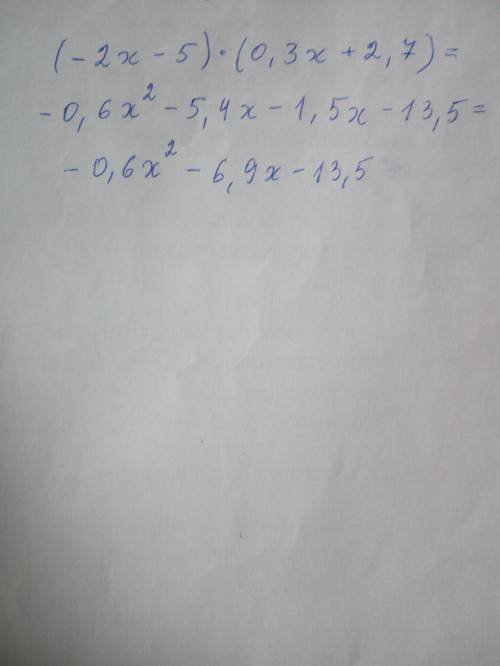 (-2x-5)·(0,3x+2,7)=
-0,6x²-5,4x-1,5x-13,5=
-0,6x²-6,9x-13,5